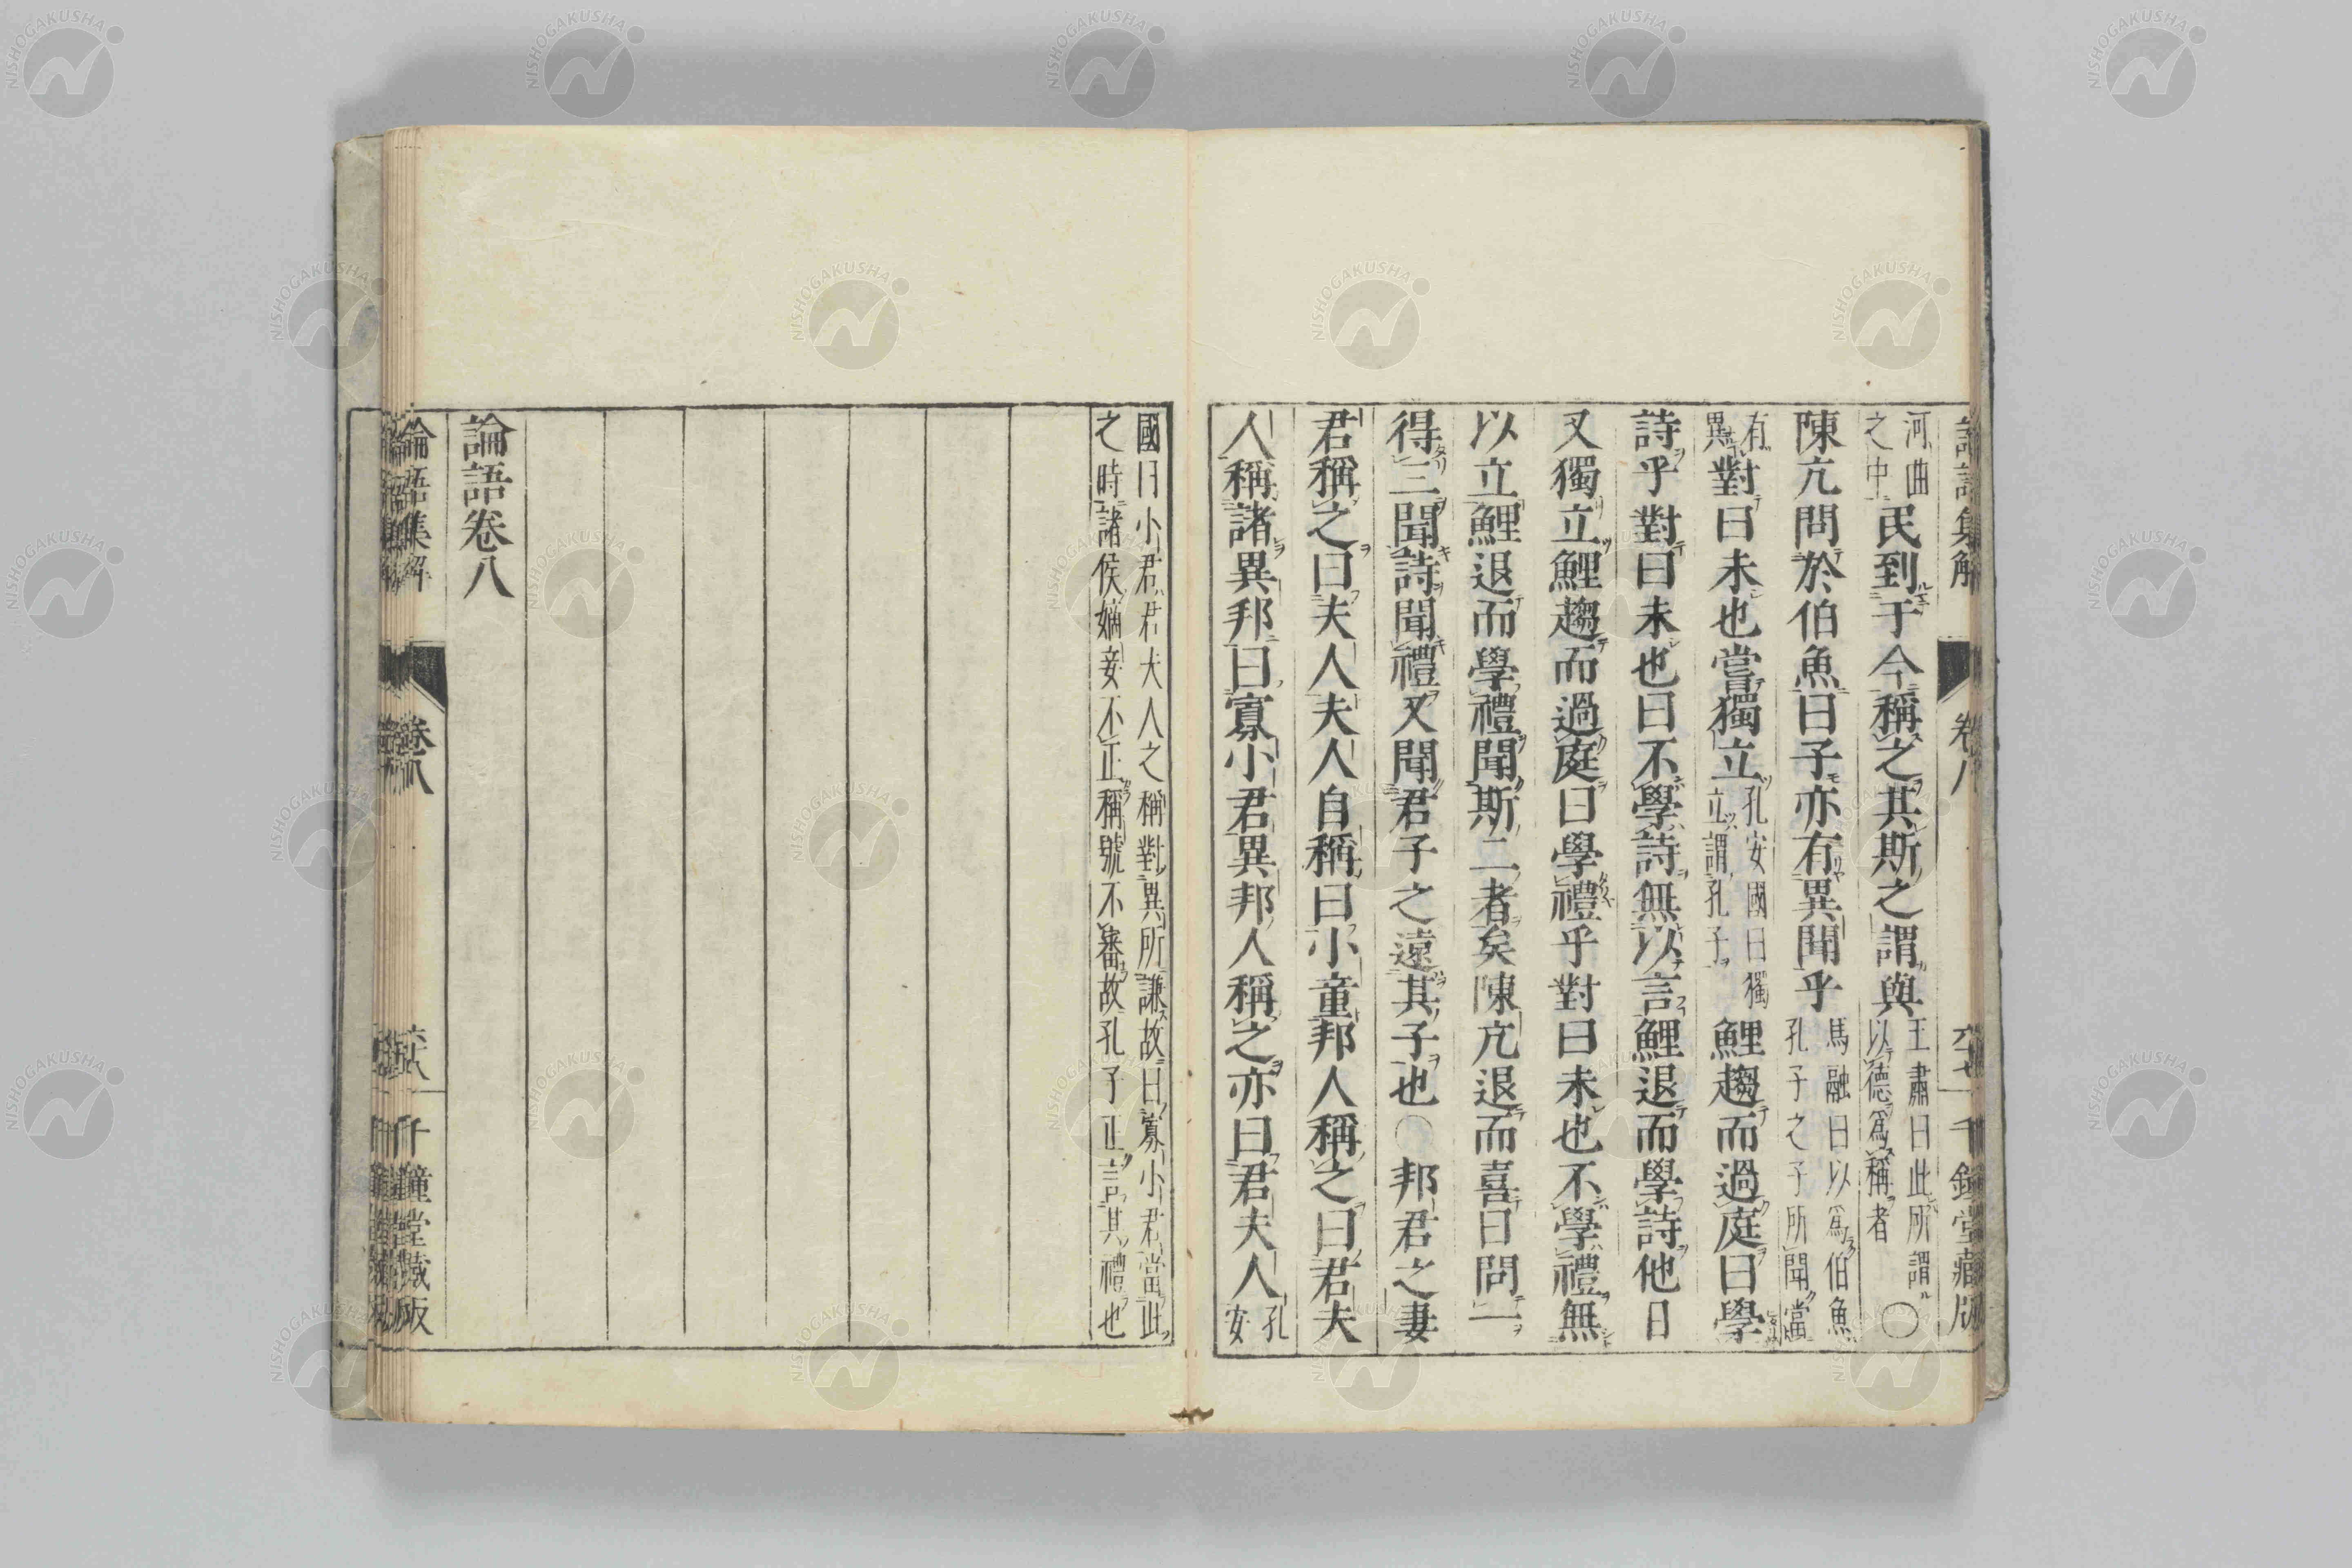 論語集解 卷八 六十七 千鐘堂藏版
河曲之中民到于今稱之其斯之謂與王肅曰此所謂以德爲稱者○
陳亢問於伯魚曰子亦有異聞乎馬融曰以爲伯魚孔子之子所聞當
有異對曰未也嘗獨立孔安國曰獨立謂孔子鯉趨而過庭曰學
詩乎對曰未也曰不學詩無以言鯉退而學詩他日
又獨立鯉趨而過庭曰學禮乎對曰未也不學禮無
以立鯉退而學禮聞斯二者矣陳亢退而喜曰問一
得三聞詩聞禮又聞君子之遠其子也○邦君之妻
君稱之曰夫人夫人自稱曰小童邦人稱之曰君夫
人稱諸異邦曰寡小君異邦人稱之亦曰君夫人孔安
國曰小君君夫人之稱對異所謙故曰寡小君當此
之時諸侯嫡妾不正稱號不審故孔子正言其禮也
論語卷八
論語集解 卷八 六十八 千鐘堂藏版
NISHOGAKUSHA